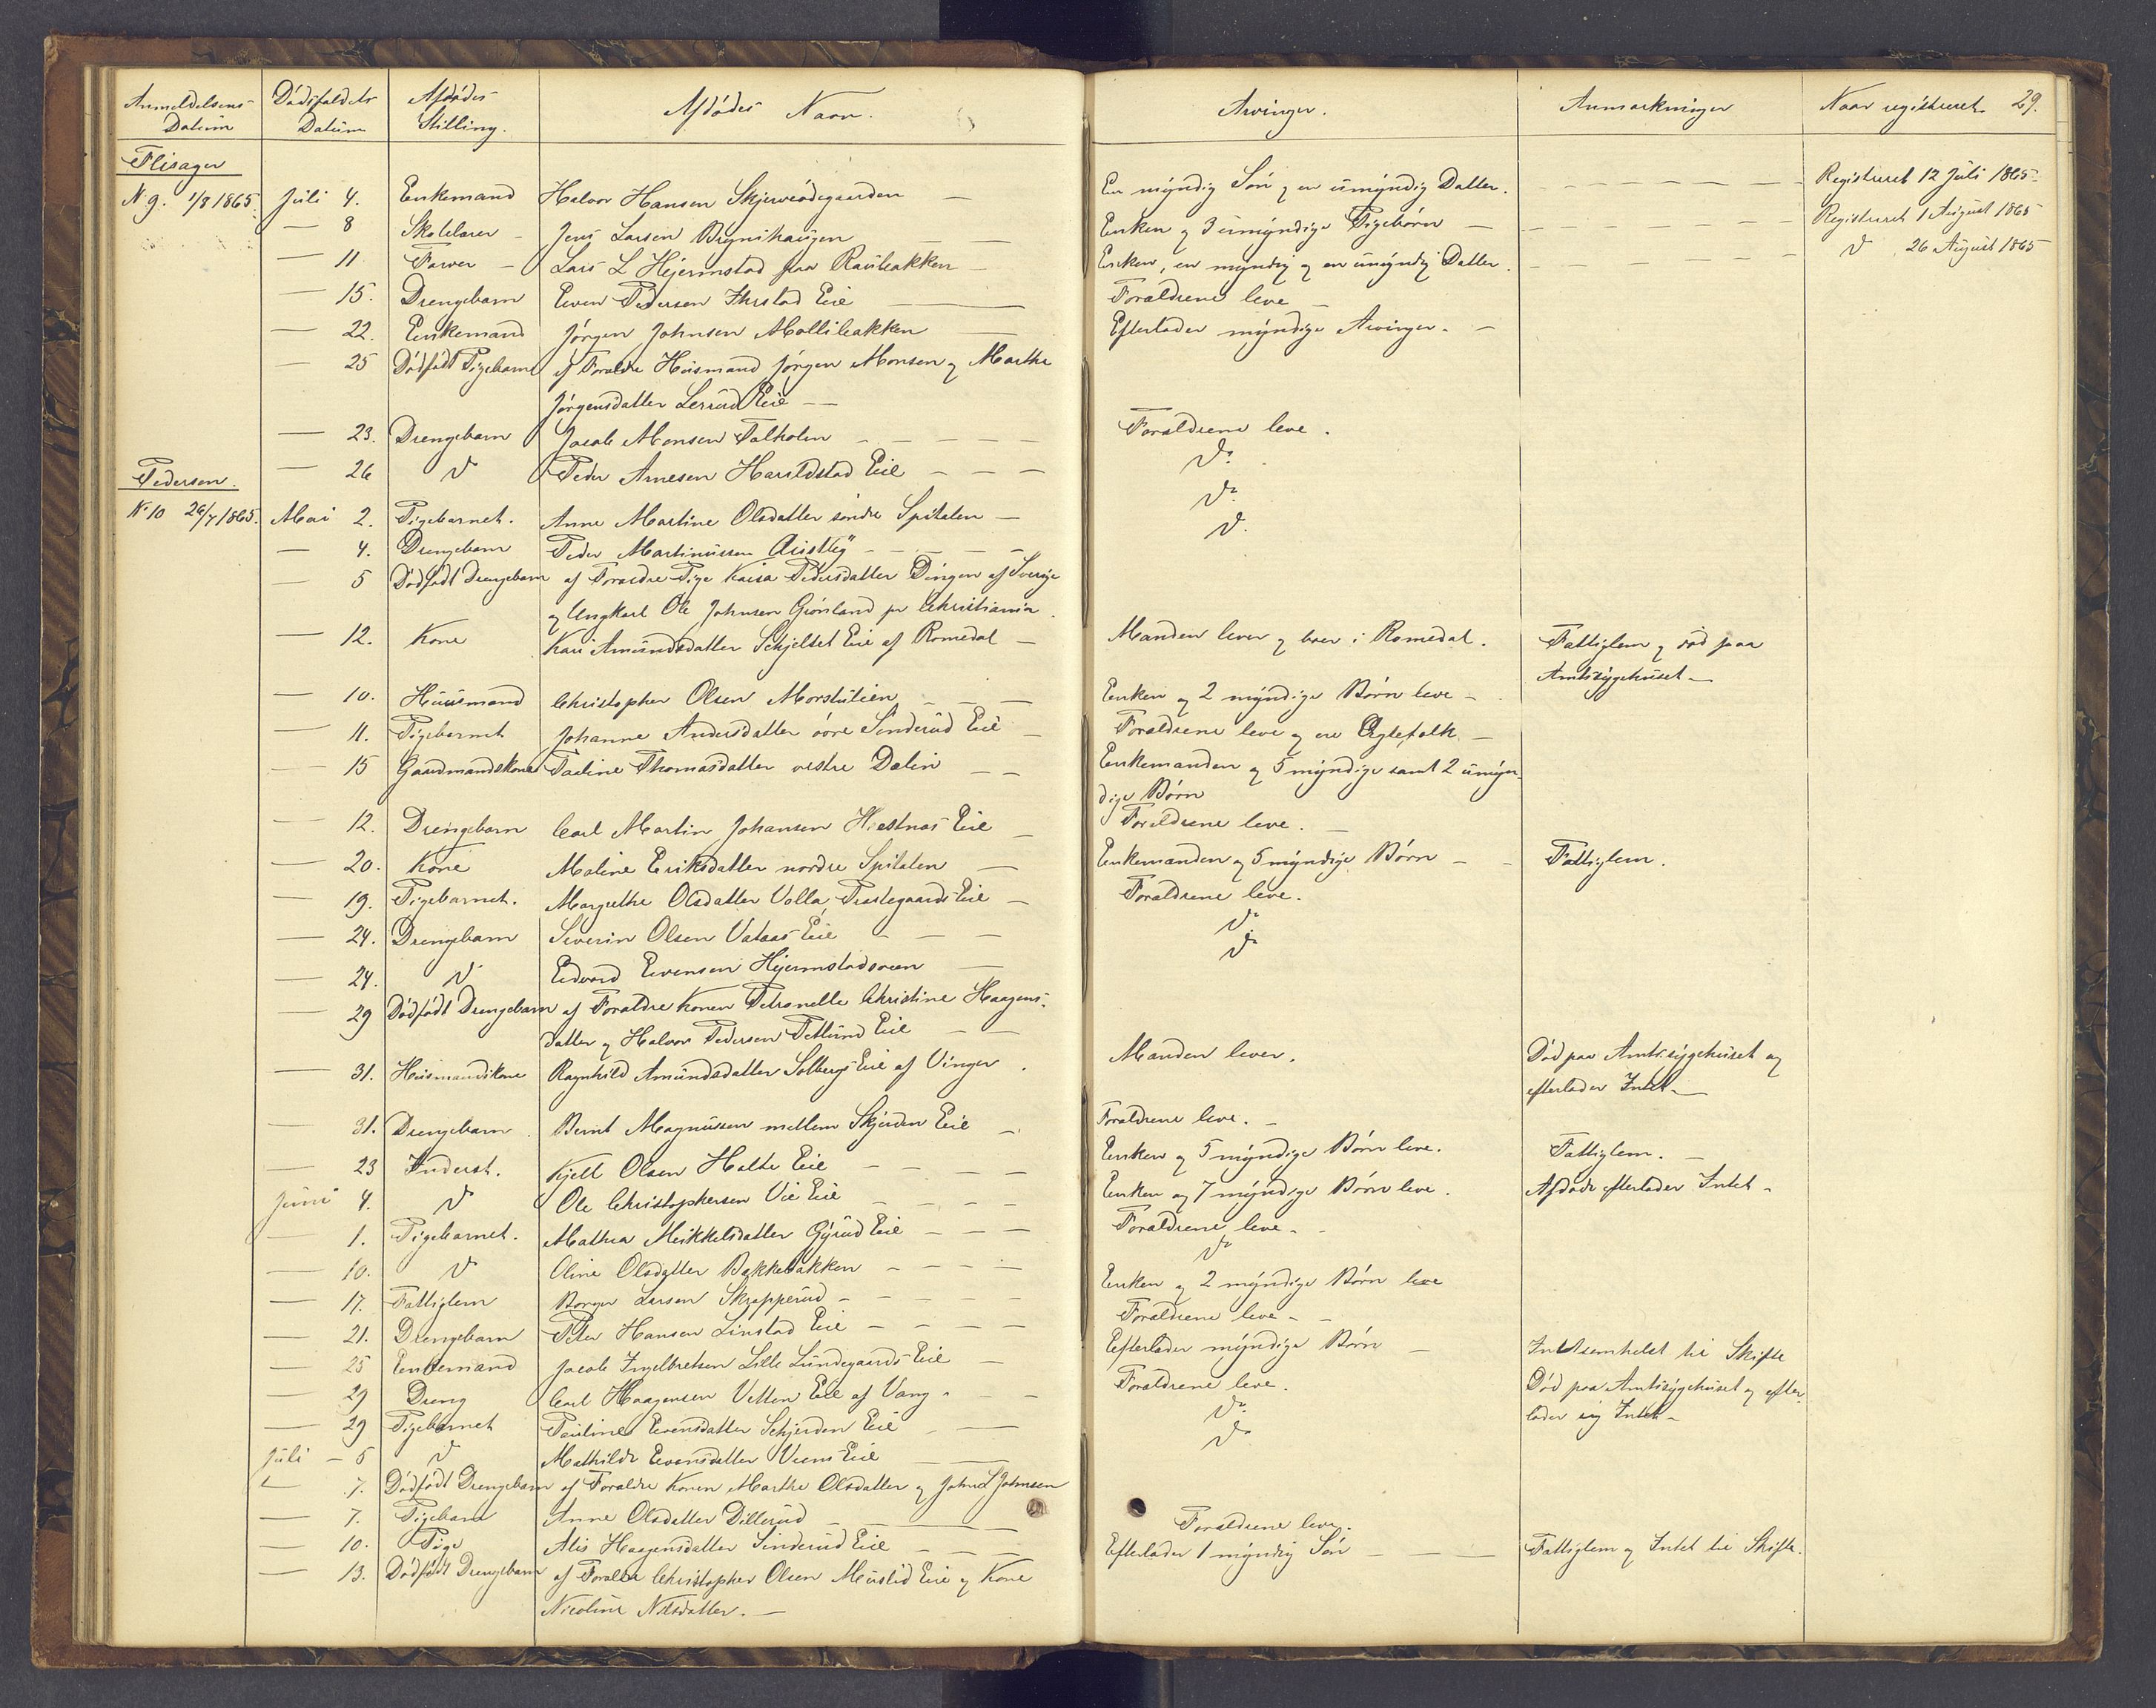 Anmeldelsens Datum | Dødsfaldets Datum | Afdødes Stilling. | Afdødes Navn. | Arvinger. | Anmærkninger | Naar registreret. 29.
Flisager
N 9. 1/8 1865. Juli 4. Enkemand Halvor Hansen Skjerveødegaarden — En myndig Søn og en umyndig Datter. — Registreret 12 Juli 1865
— 8 Skolelærer Jens Larsen — Enken og 3 umyndige Pigebørn — Registreret 1 August 1865
— 11 Farver — Lars L Hjermstad paa — Enken, en myndig og en umyndig Datter. — Do 26 August 1865
— 15. Drengebarn Even Pedersen Ihrstad Eie — Forældrene leve —
— 22. Enkemand Jørgen Johnsen — Efterlader myndige Arvinger. —
— 25 Dødfødt Pigebarn af Forældre Huusmand Jørgen Monsen og Marthe
Jørgensdatter Lerud Eie —
— 23. Drengebarn Jacob Monsen — Forældrene leve.
Pedersen.
— 26 Do Peder Arnesen Harildstad Eie — Do.
N 10 26/7 1865. Mai 2. Pigebarnet. Anne Martine Olsdatter søndre Spitalen — Do.
— 4. Drengebarn Peder Martinussen — Do.
— 5 Dødfødt Drengebarn af Forældre Pige Kaisa Pedersdatter Dingen af Sverige
og Ungkarl Ole Johnsen Grønland pr Christiania.
— 12. Kone Kari Amundsdatter Schjelset Eie af Romedal — Manden lever og boer i Romedal. Fattiglem og død paa
Amtssygehuset —
— 10. Huusmand Christopher Olsen — Enken og 2 myndige Børn leve —
— 11. Pigebarnet Johanne Andersdatter øvre Sinderud Eie — Forældrene leve og ere Ægtefolk —
— 15 Gaardmandskone Pauline Thomasdatter vestre Dalin — Enkemanden og 5 myndige samt 2 umyn-
dige Børn
— 12. Drengebarn Carl Martin Johansen — Eie — Forældrene leve. —
— 20. Kone Maline Eriksdatter nordre Spitalen — Enkemanden og 5 myndige Børn — Fattiglem.
— 19. Pigebarnet. Margrethe Olsdatter Volla, Præstegaards Eie — Forældrene leve.
— 24. Drengebarn Severin Olsen Valaas Eie — Do
— 24. Do Edvard Evensen — Do
— 29 Dødfødt Drengebarn af Forældre Konen Petronelle Christine Haagens-
datter og Halvor Pedersen Tetlund Eie —
— 31. Huusmandskone Ragnhild Amundsdatter Solbergs Eie af Vinger. Manden lever. Død paa Amtssygehuset og
efterlader Intet —
— 31. Drengebarn Bernt Magnussen mellem Skjerden Eie — Forældrene leve. —
— 23 Inderst. Kjell Olsen Holte Eie — Enken og 5 myndige Børn leve. Fattiglem. —
Juni 4. Do Ole Christophersen Vie Eie — Enken og 7 myndige Børn leve. Afdøde efterlader Intet —
— 1. Pigebarnet. Mathea Mikkelsdatter Gyrud Eie — Forældrene leve —
— 10. Do Oline Olsdatter Bakkebakken — Do
— 17. Fattiglem Borger Larsen Skrapperud — Enken og 2 myndige Børn leve
— 21. Drengebarn Peter Hansen Linstad Eie — Forældrene leve —
— 25 Enkemand Jacob Ingelbretsen Lille Lundegaards Eie — Efterlader myndige Børn — Intetsomhelst til Skifte
— 29 Dreng Carl Haagensen Vetten Eie af Vang — Forældrene leve. Død paa Amtssygehuset og efter-
lader sig Intet —
— 29 Pigebarnet Pauline Evensdatter Schjerden Eie — Do.
Juli — 5 Do Mathilde Evensdatter Viens Eie — Do
— 7. Dødfødt Drengebarn af Forældre Konen Marthe Olsdatter og John L Johnsen
— 7. Pigebarn Anne Olsdatter Dillerud — Forældrene leve.
— 10. Pige Alis Haagensdatter Sinderud Eie — Efterlader 1 myndig Søn — Fattiglem og Intet til Skifte.
— 13. Dødfødt Drengebarn af Forældre Christopher Olsen Mustid Eie og Kone
Nicoline Nilsdatter. —